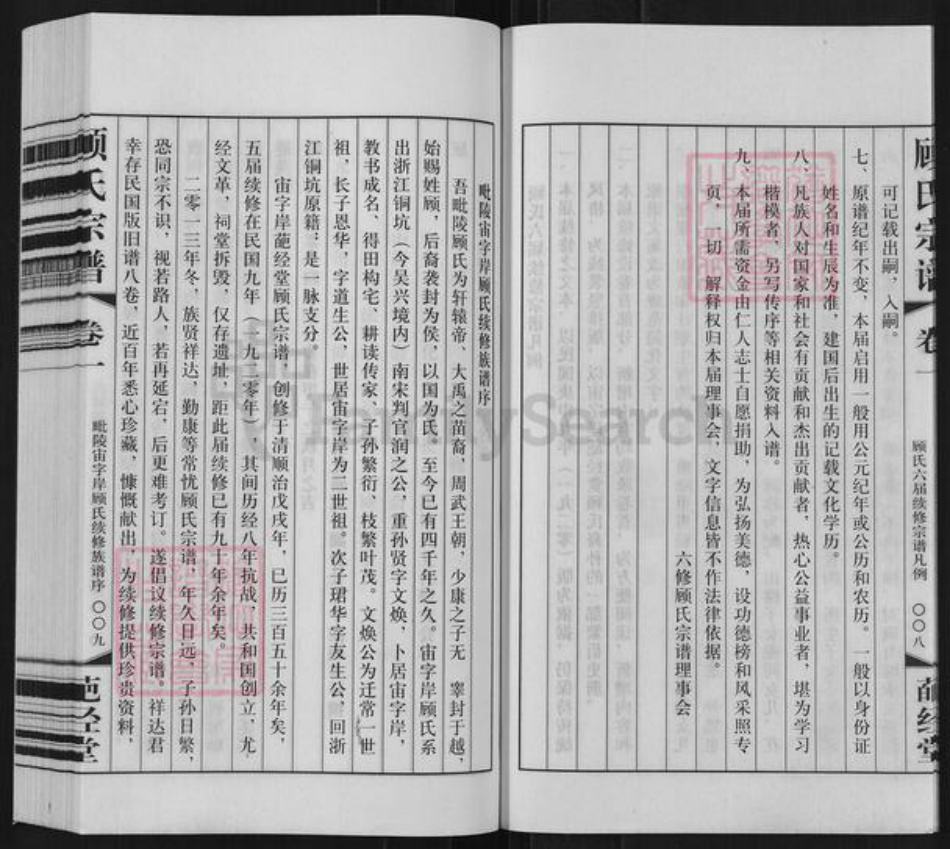 顾氏宗谱
卷一
顾氏六届续修宗谱凡例
〇〇八
葩经堂
可记载出嗣,入嗣。
七、原谱纪年不变,本届启用一般用公元纪年或公历和农历。一般以身份证
姓名和生辰为准,建国后出生的记载文化学历。
八、凡族人对国家和社会有贡献和杰出贡献者,热心公益事业者,堪为学习
楷模者,另写传序等相关资料入谱。
九、本届所需资金由仁人志士自愿捐助,为弘扬美德,设功德榜和风采照专
页,一切解释权归本届理事会,文字信息皆不作法律依据。
六修顾氏宗谱理事会
毗陵宙字岸顾氏续修族谱序
吾毗陵顾氏为轩辕帝、大禹之苗裔,周武王朝,少康之子无 睾封于越,
始赐姓顾,后裔袭封为侯,以国为氏,至今已有四千年之久。宙字岸顾氏系
出浙江铜坑(今吴兴境内)南宋判官润之公,重孙贤字文焕,卜居宙字岸,
教书成名、得田构宅、耕读传家、子孙繁衍、枝繁叶茂。文焕公为迁常一世
祖,长子恩华,字道生公,世居宙字岸为二世祖。次子珺华字友生公,回浙
江铜坑原籍;是一脉支分。
宙字岸葩经堂顾氏宗谱,创修于清顺治戊戌年,已历三百五十余年矣,
五届续修在民国九年(一九二零年),其间历经八年抗战,共和国创立,尤
经文革,祠堂拆毁,仅存遗址,距此届续修已有九十年余年矣。
二零一三年冬,族贤祥达,勤康等常忧顾氏宗谱,年久日远,子孙日繁,
恐同宗不识,视若路人,若再延宕,后更难考订。遂倡议续修宗谱。祥达君
幸存民国版旧谱八卷,近百年悉心珍藏,慷慨献出,为续修提供珍贵资料,
顾氏宗谱
卷一
毗陵宙字岸顾氏续修族谱序
〇〇九
葩经堂